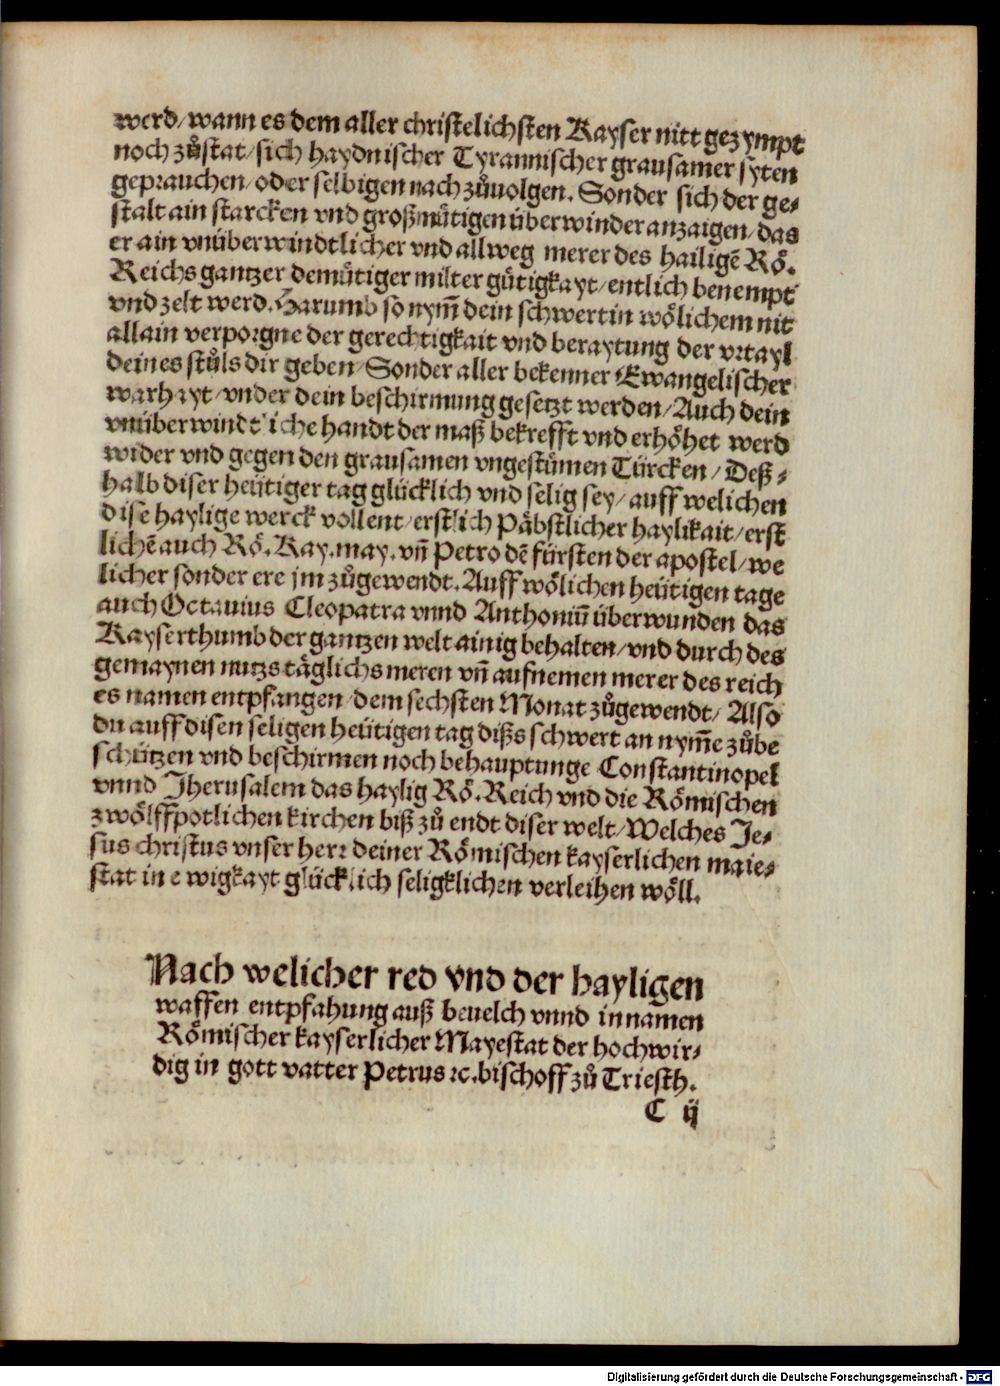 werd/wann es dem aller christelichsten Kayser nitt gezympt
noch zů̊stat/sich haydnischer Tyrannischer grausamer syten
geprauchen/oder selbigen nach zůuolgen. Sonder sich der ge⸗
stalt ain starcken vnd großmůtigen überwinder anzaigen/das
er ain vnüberwindtlicher vnd allweg merer des hailigē Rö.
Reichs gantzer demůtiger milter gůtigkayt/entlich benempt
vnd zelt werd. Harumb so nym̄ dein schwert in wölichem nit
allain verporgne der gerechtigkait vnd beraytung der vrtayl
deines stůls dir geben/Sonder aller bekenner Ewangelischer
warhayt/vnder dein beschirmung gesetzt werden/Auch dein
vnüberwindtliche handt der maß bekrefft vnd erhöhet werd
wider vnd gegen den grausamen vngestůmen Türcken/Deß⸗
halb diser heütiger tag glücklich vnd selig sey/auff welichen
dise haylige werck vollent/erstlich Päbstlicher haylikait/erst
lichē auch Rö. Kay. may. vn̄ Petro dē fürsten der apostel/we
licher sonder ere jm zůgewendt. Auff wölichen heütigen tage
auch Octauius Cleopatra vnnd Anthoniū überwunden das
Kayserthumb der gantzen welt ainig behalten/vnd durch des
gemaynen nutzs täglichs meren vn̄ aufnemen merer des reich
es namen entpfangen/dem sechsten Monat zůgewendt/Also
du auff disen seligen heütigen tag dißs schwert an nym̄e zůbe
schützen vnd beschirmen noch behauptunge Constantinopel
vnnd Jherusalem das haylig Rö. Reich vnd die Römischen
zwölffpotlichen kirchen biß zů endt diser welt/Welches Je⸗
sus christus vnser herr deiner Römischen kayserlichen maie⸗
stat in ewigkayt glücklich seligklichen verleihen wöll.
Nach welicher red vnd der hayligen
waffen entpfahung auß beuelch vnnd in namen
Römischer kayserlicher Mayestat der hochwir⸗
dig in gott vatter Petrus ꝛc. bischoff zů Triesth.
C ij
Digitalisierung gefördert durch die Deutsche Forschungsgemeinschaft - DFG